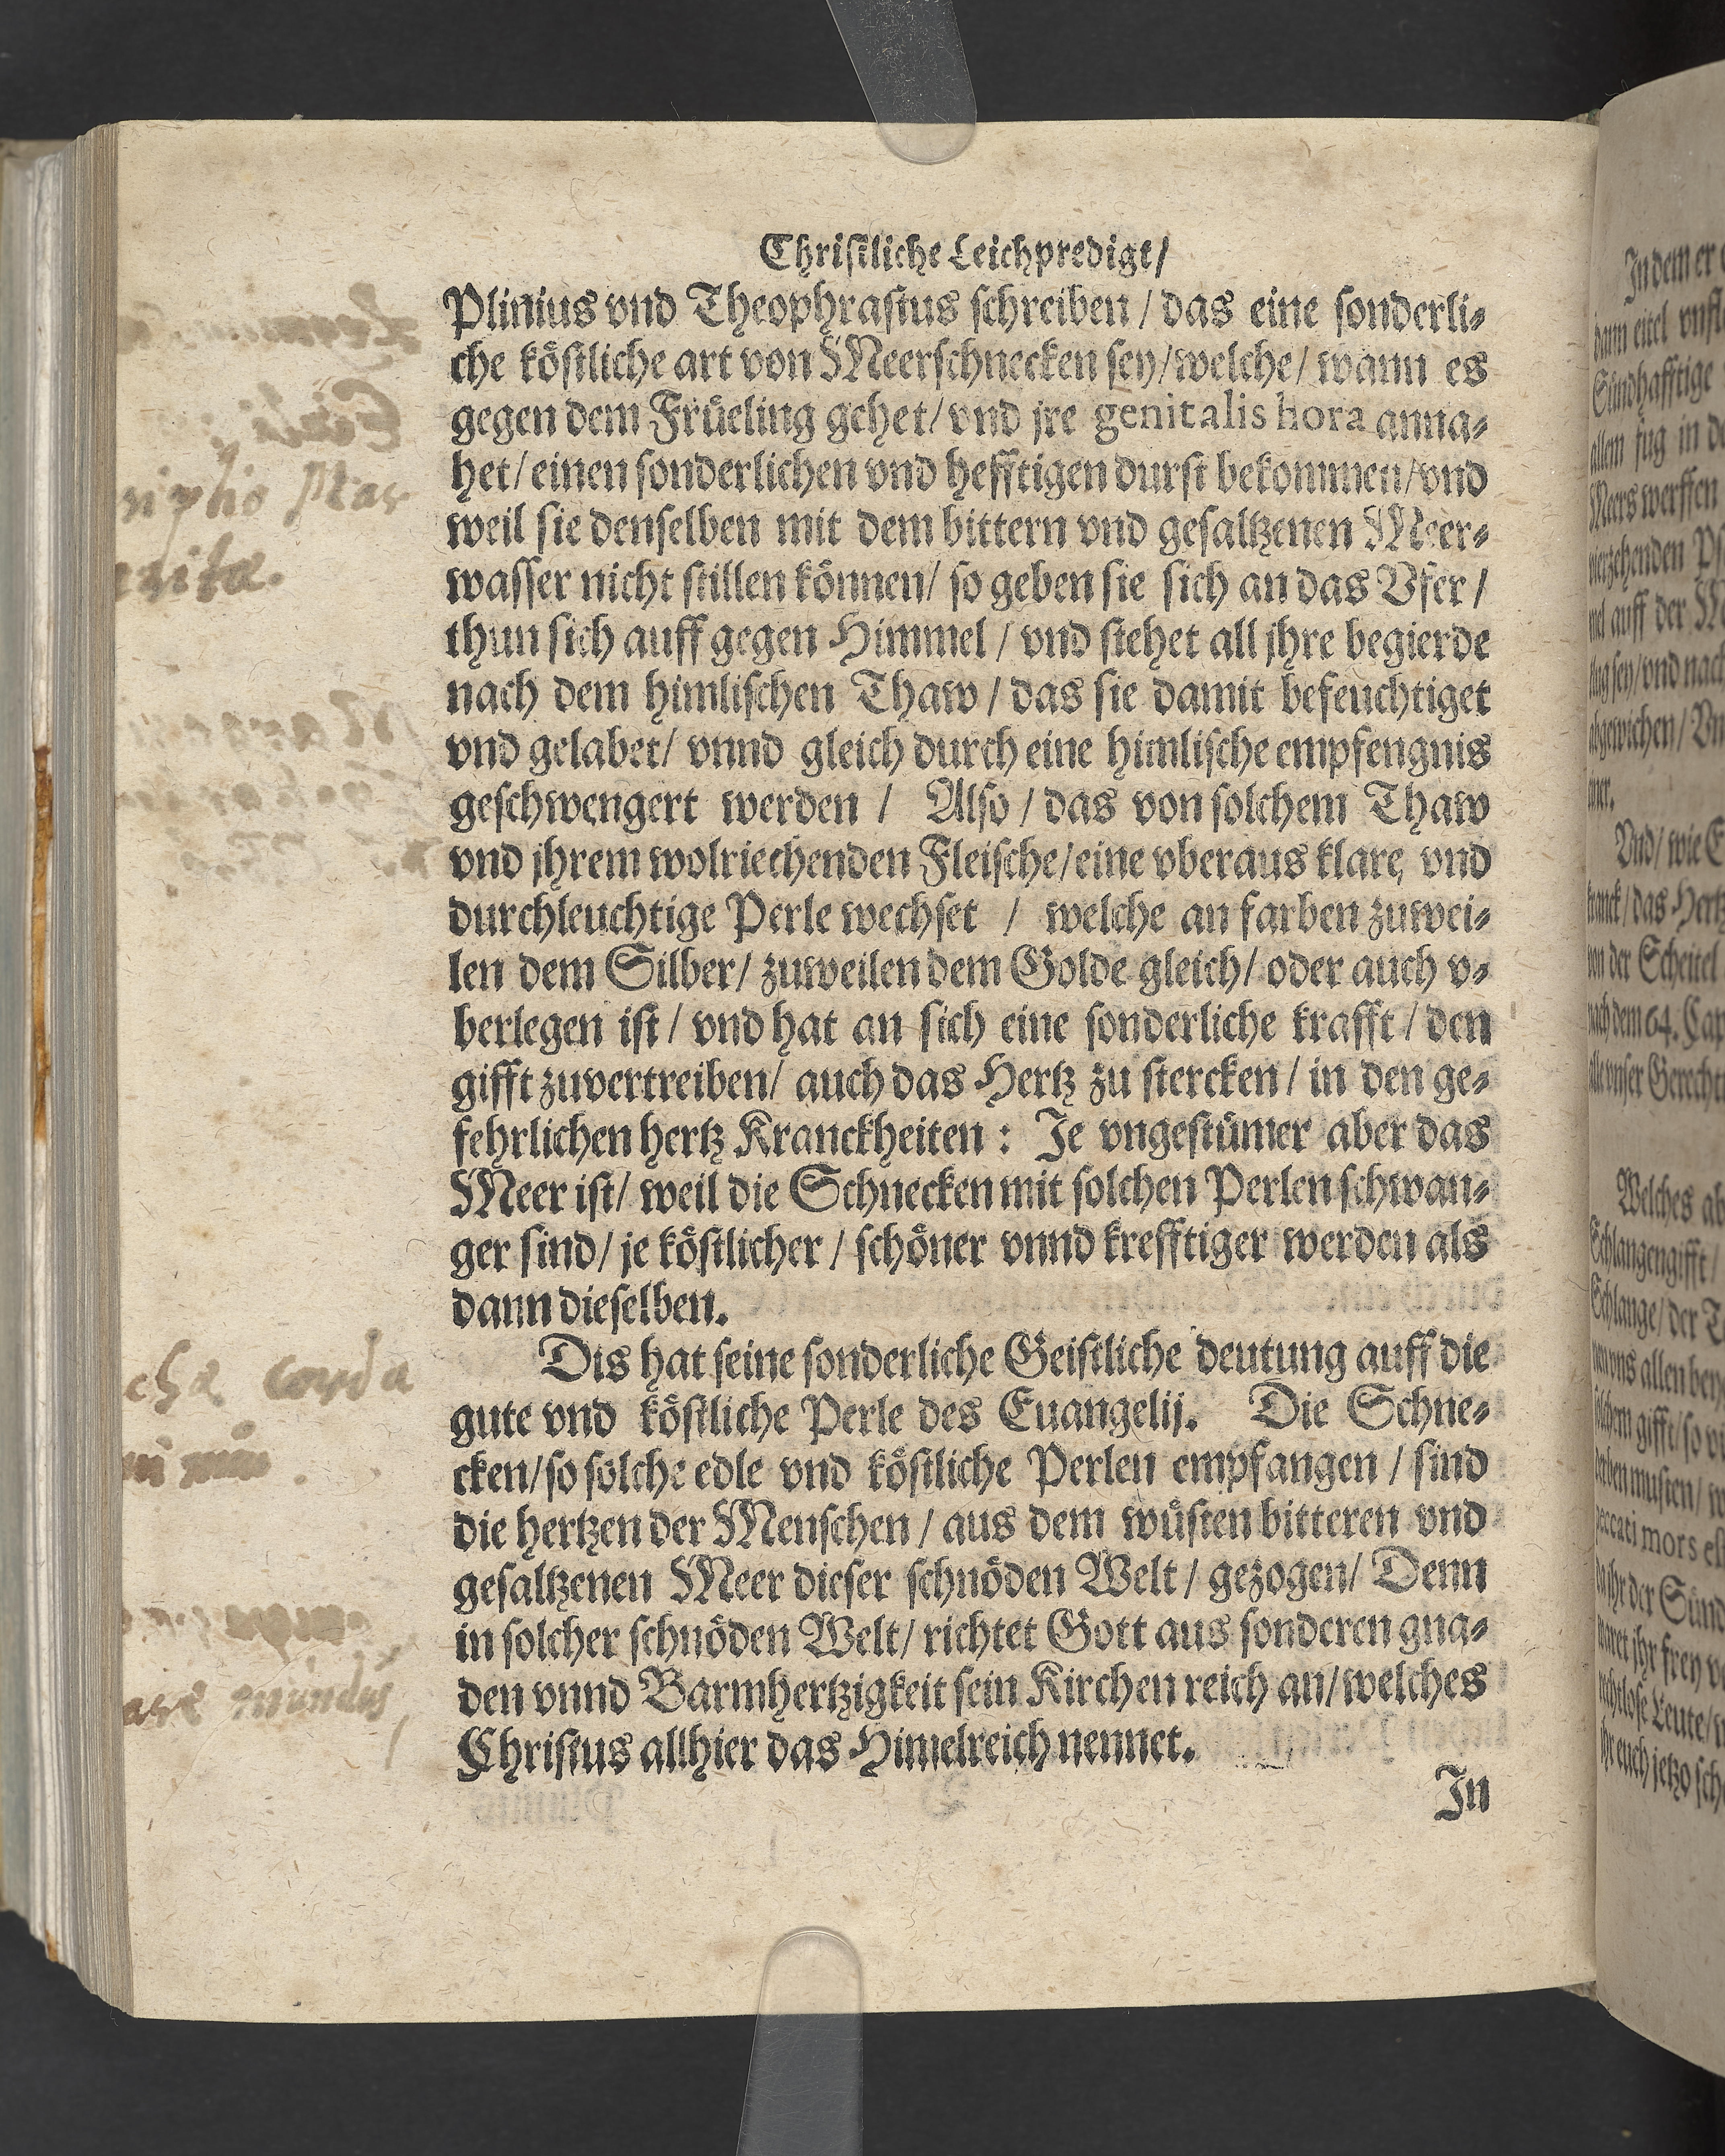 Christliche Leichpredigt/
Plinius vnd Theophrastus schreiben / das eine sonderli-
che köstliche art von Meerschnecken sey/welche/ wann es
gegen dem Früeling gehet/ vnd jre genitalis hora anna-
het/ einen sonderlichen vnd hefftigen durst bekommen/vnd
weil sie denselben mit dem bittern vnd gesaltzenen Meer-
wasser nicht stillen können/ so geben sie sich an das Vfer /
thun sich auff gegen Himmel / vnd stehet all jhre begierde
nach dem himlischen Thaw / das sie damit befeuchtiget
vnd gelabet/ vnnd gleich durch eine himlische empfengnis
geschwengert werden / Also / das von solchem Thaw
vnd jhrem wolriechenden Fleische/eine vberaus klare, vnd
durchleuchtige Perle wechset / welche an farben zuwei-
len dem Silber/ zuweilen dem Golde gleich/ oder auch v-
berlegen ist / vnd hat an sich eine sonderliche krafft / den
gifft zuvertreiben/ auch das Hertz zu stercken / in den ge-
fehrlichen hertz Kranckheiten : Je vngestümer aber das
Meer ist/ weil die Schnecken mit solchen Perlen schwan-
ger sind/ je köstlicher / schöner vnnd krefftiger werden als
dann dieselben.
Dis hat seine sonderliche Geistliche deutung auff die
gute vnd köstliche Perle des Euangelij. Die Schne-
cken/so solche edle vnd köstliche Perlen empfangen / sind
die hertzen der Menschen / aus dem wüsten bitteren vnd
gesaltzenen Meer dieser schnöden Welt / gezogen/ Denn
in solcher schnöden Welt/ richtet Gott aus sonderen gna-
den vnnd Barmhertzigkeit sein Kirchen reich an/welches
Christus allhier das Himelreich nennet.
In
corda
mundus
In dem er
dann eitel
Sündhafftige
allem fug in
Meers werffen
auff der
sey/ vnd nach
abgewichen/
Vnd/ wie
/ das Hertz
von der Scheitel
nach dem 64. Cap
vnser Gerecht
Welches ab
Schlangengifft /
Schlange/ der
vns allen bey
gifft/ so
musten/
peccati mors est
der Sünd
ihr frey
Leute/
ihr euch jetzo